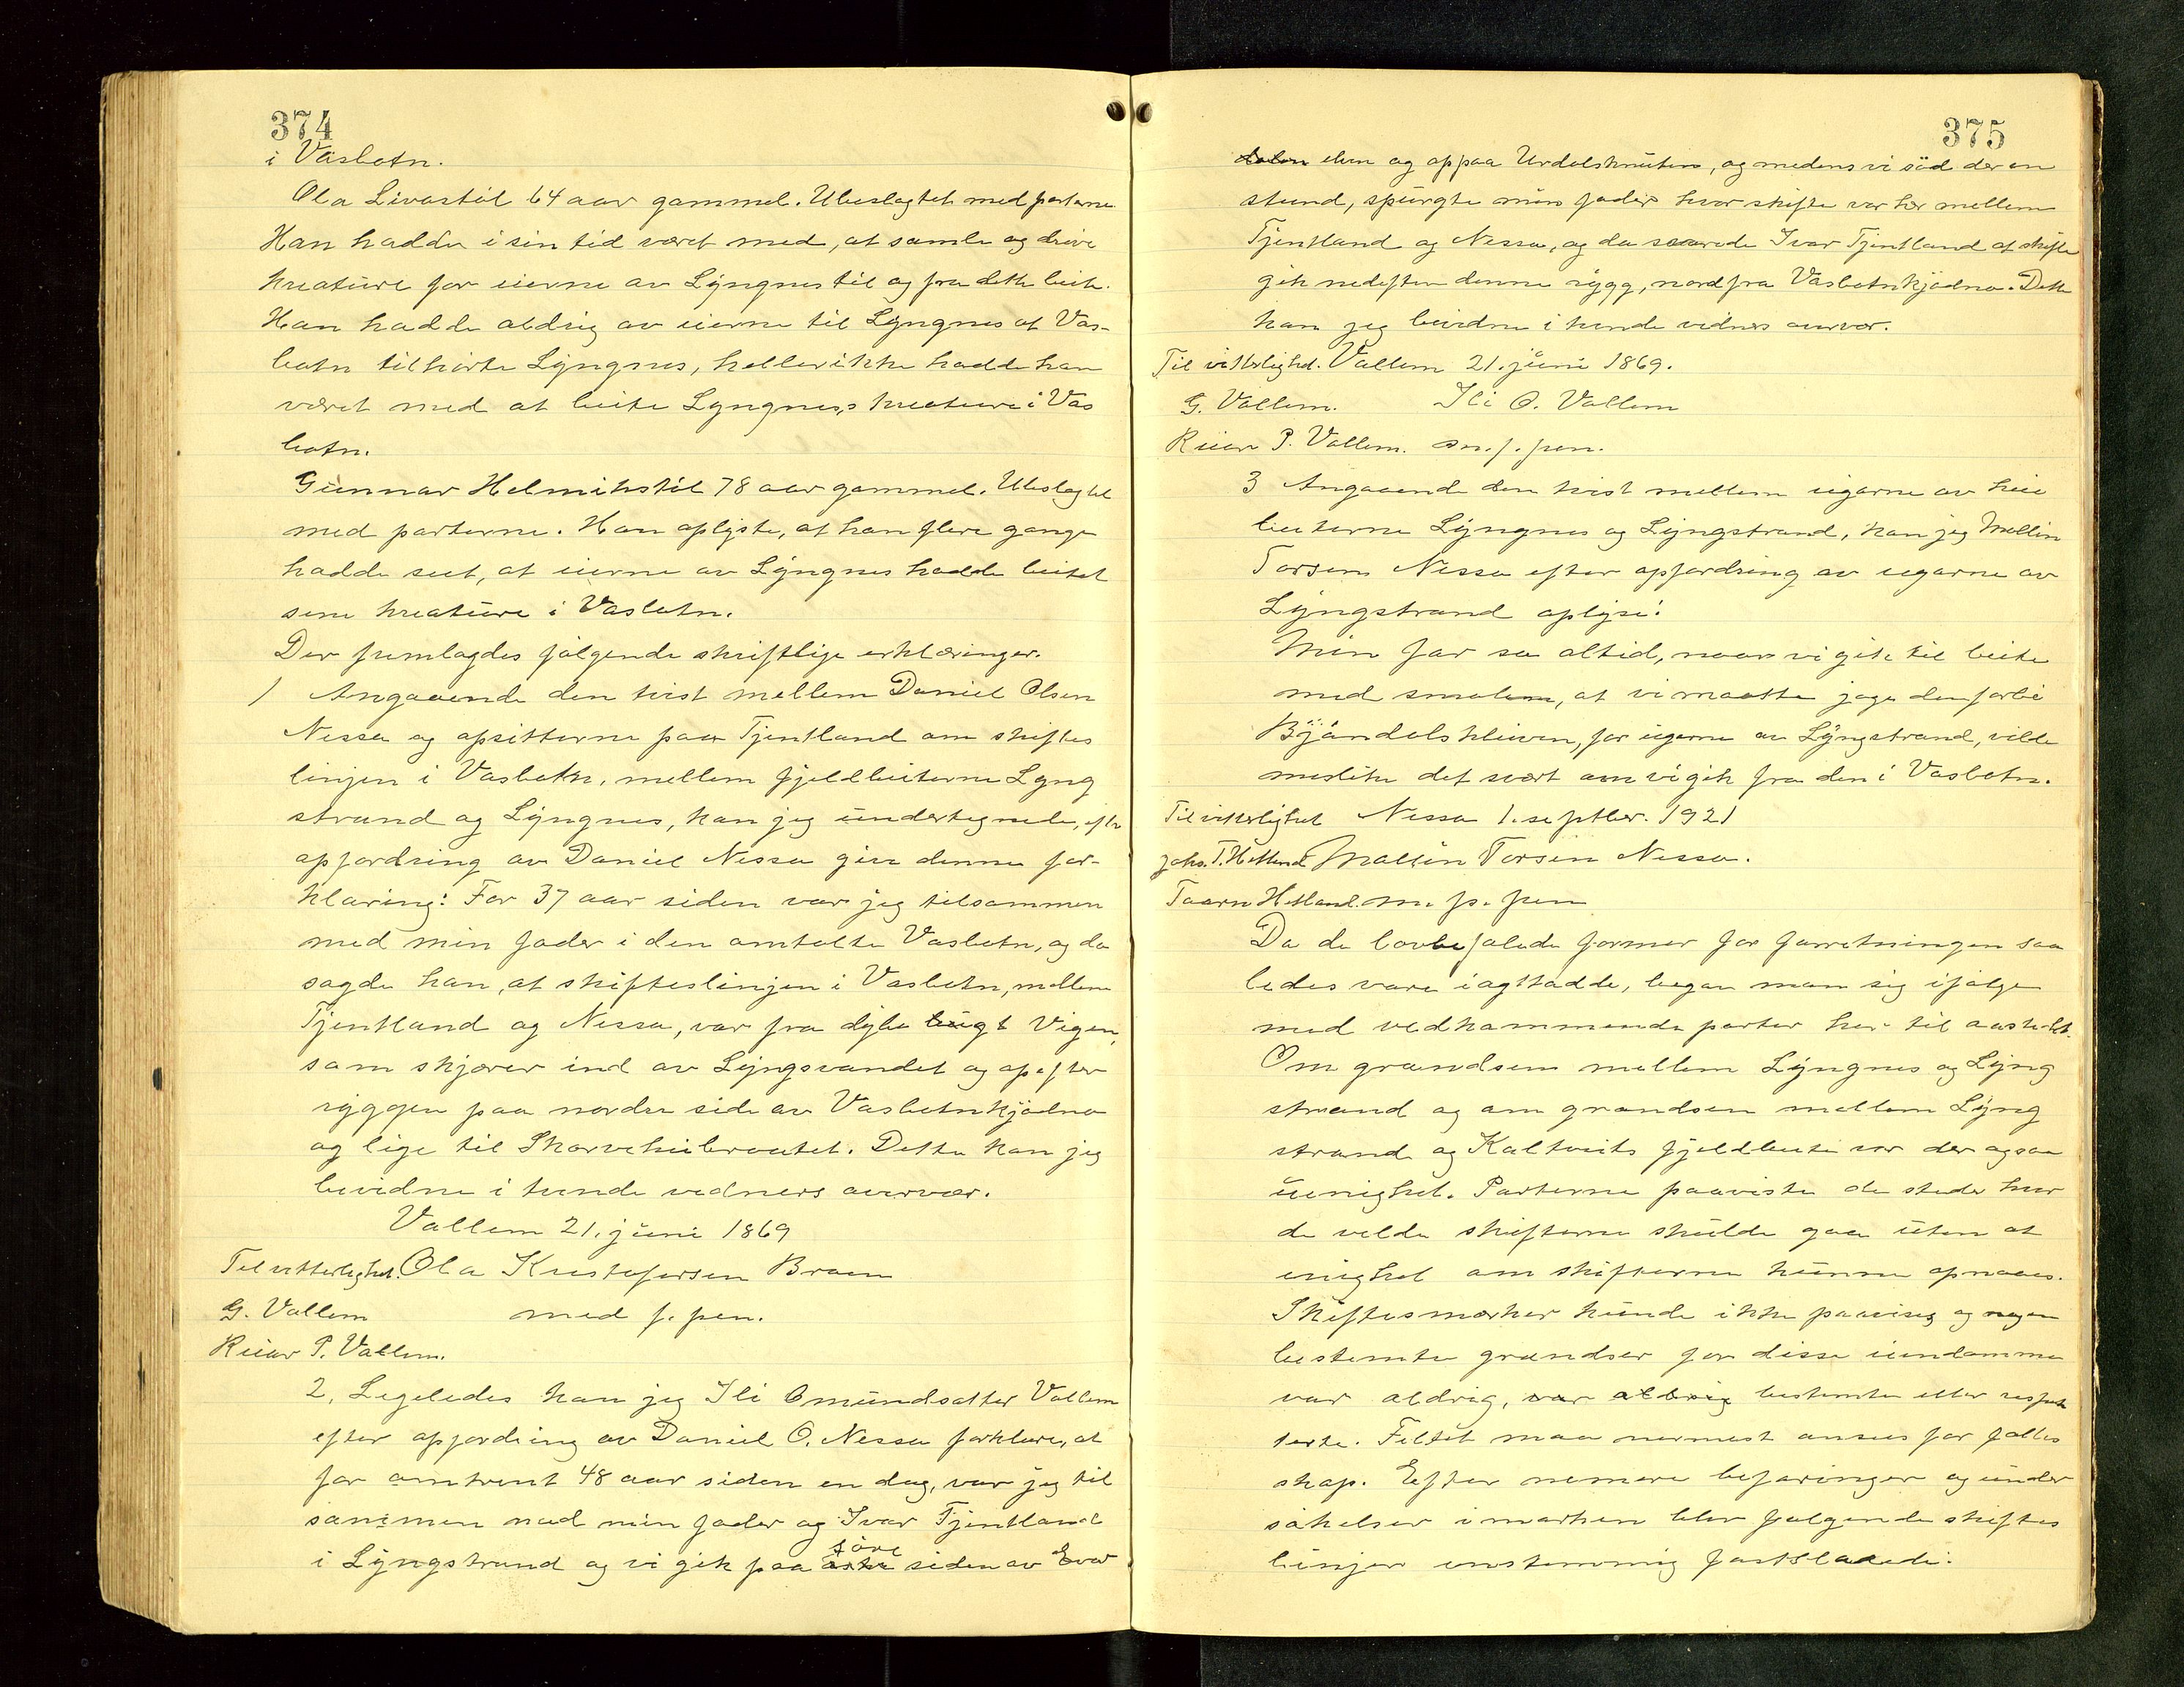 374
i Vasbotn.
Ola Livastøl 64 aar gammel. Ubeslagtet med parterne
Han hadde i sin tid været med, at samle og drive
kreature for eierne av Lyngnes til og fra dette beite.
Han hadde aldrig av eierne til Lyngnes at Vas-
botn tilhørte Lyngnes, heller ikke hadde han
været med at beite Lyngnes's kreature i Vas
botn.
Gunnar Helmikstøl 78 aar gammel. Ubeslagtet
med parterne. Han oplyste, at han flere gange
hadde seet, at eierne av Lyngnes hadde beitet
sine kreature i Vasbotn.
Der fremlagdes følgende skriftlige erklæringer.
1 Angaaende den tvist mellem Daniel Olsen
Nessa og opsitterne paa Tjentland om skiftes
linjen i Vasbotn, mellem fjeldbeiterne Lyng
strand og Lyngnes, kan jeg undertegnede, efter
opfordring av Daniel Nessa give denne for-
klaring: For 37 aar siden var jeg tilsammen
med min fader i den omtalte Vasbotn, og da
sagde han, at skifteslinjen i Vasbotn, mellem
Tjentland og Nessa, var fra dybe bugt Vigen,
som skjærer ind av Lyngsvandet og opefter
ryggen paa nordre side av Vasbotnkjødna
og lige til Skorveheibroutet. Dette kan jeg
bevidne i tvende vedners overvær.
Vallem 21. juni 1869
Til vitterlighet. Ola Kristofersen Braen
G. Vallem med p. pen.
Reiar P. Vallem.
2, Legeledes kan jeg Ili Omundsatter Vallem
efter opfordring av Daniel O. Nessa forklare, at
for omtrent 48 aar siden en dag, var jeg til
sammen med min fader og Ivar Tjentland
i Lyngstrand og vi gik paa søre siden av
375
elven og op paa Urdalsknuten, og medens vi sad der en
stund, spurgte min fader hvor skifte var her mellem
Tjentland og Nessa, og da svarede Ivar Tjentland at skifte
gik nedefter denne rygg, nord fra Vasbotnkjødna. Dette
kan jeg bevidne i tvende vidners overvær.
Til vitterlighed. Vallem 21. juni 1869.
G. Vallem. Ili O. Vallem
Reiar P. Vallem. m. p. pen.
3 Angaaende den tvist mellem eigarne av heie
beiterne Lyngnes og Lyngstrand, kan jeg Mallin
Torsen Nessa efter opfordring av eegarne av
Lyngstrand oplyse:
Min far sa altid, naar vi gik til beite
med smalen, at vi maatte jage den forbi
Bjåndalskleiven, for eigerne av Lyngstrand, vilde
mislike det svært om vi gik fra den i Vasbotn.
Til vitterlighet Nessa 1. septbr. 1921
Johs. T. Hetland Mallin Torsen Nessa.
Taarn Hetland. m. p. pen
Da de lovbefalede former for forretningen saa
ledes vare iagttadde, begav man sig ifølge
med vedkommende parter her til aastedet.
Om grændsen mellem Lyngnes og Lyng
strand og om grændsen mellem Lyng
strand og Kaltveits fjeldbeite var der ogsaa
uenighet. Parterne paaviste de steder hvor
de velde skifterne skulde gaa uten at
enighet om skifterne kunne opnaaes.
Skiftesmærker kunde ikke paavises og nogen
bestemte grændser for disse eiendomme
var aldrig, var aldrig bestemte eller respek
terte. Feltet maa nærmest ansees for fælles
skap. Efter nærmere befaringer og under
søkelser i marken blev følgende skiftes
linjer enstemmig fastslaaede: